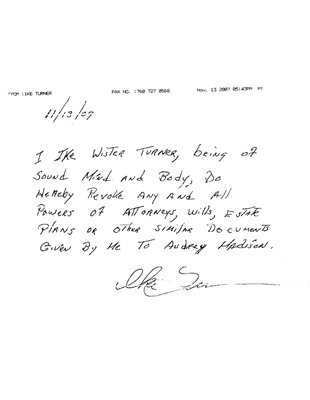 FROM : IKE TURNER FAX NO. : 760 727 0568 Nov. 13 2007 05:43PM P1
11/13/07
I Ike Wister Turner, being of
Sound Mind and Body, Do
Hereby Revoke Any And All
Powers of Attorneys, Wills, Estate
Plans or other similar Documents
Given By Me To Audrey Madison.
Ike Turner